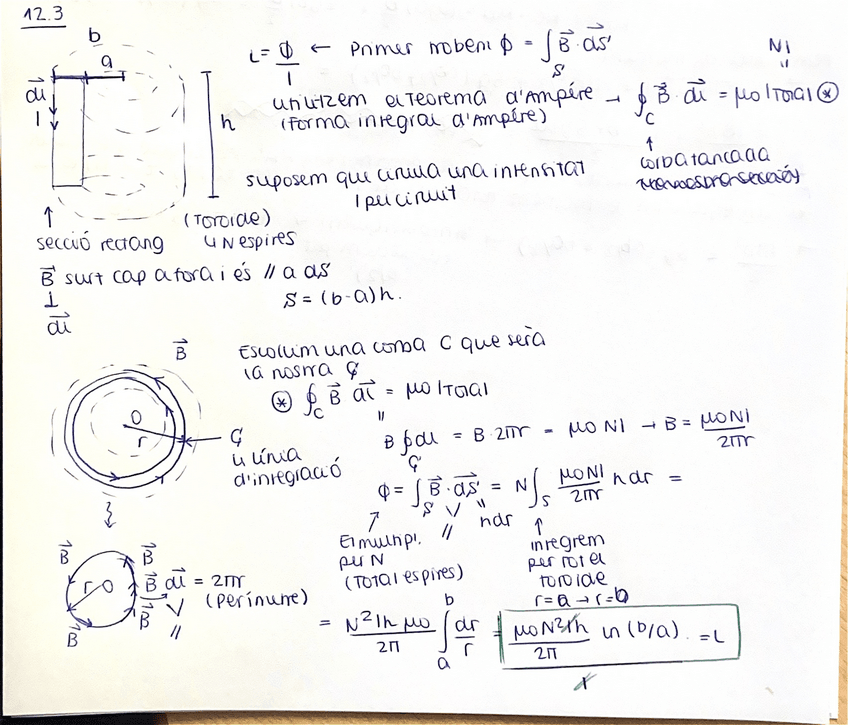 12.3
b
a
dl
I
h
L = Φ/I ← Primer trobem Φ = ∫S B⃗ · dS⃗
utilitzem el Teorema d'Ampére → ∮C B⃗ · dl⃗ = μ0 I Total ⊛
NI
"
(forma integral d'Ampére)
↑
corba tancada
suposem que circula una intensitat
I pel circuit
↑
secció rectang
(Toroide)
N espires
B⃗ surt cap a fora i és // a ds
⊥
dl⃗
S = (b-a)h.
B⃗
Escollim una corba C que serà
la nostra C
⊛ ∮C B⃗ dl⃗ = μ0 I Total
"
B ∮C dl = B·2πr = μ0 NI → B = μ0NI/2πr
O
r
← C
línia
d'integració
Φ = ∫S B⃗ · dS⃗ = N ∫S μ0NI/2πr h dr =
// hdr
↗
El multipl.
per N
(Total espires)
↑
integrem
per tot el
toroide
r=a → r=b
B⃗ B⃗
r O B⃗ dl⃗ = 2πr
B⃗ (perímetre)
B⃗
//
= N²Ih μ0/2π ∫ab dr/r = μ0N²Ih/2π ln (b/a). = L
I